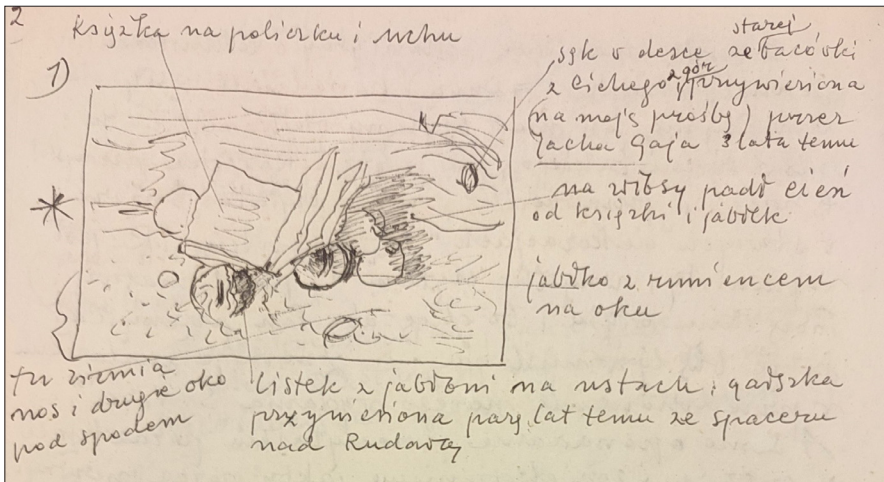 2
książka na policzku i uchu
1)
sęk w desce ze starej bacówki
z Cichego z gór przywieziona
(na moją prośbę) przez
Jacha Gaja 3 lata temu
na włosy padł cień
od książki i jabłek
jabłko z rumieńcem
na oku
tu ziemia
nos i drugie oko
pod spodem
listek z jabłoni na ustach i gałązka
przyniesiona parę lat temu ze spaceru
nad Rudawą